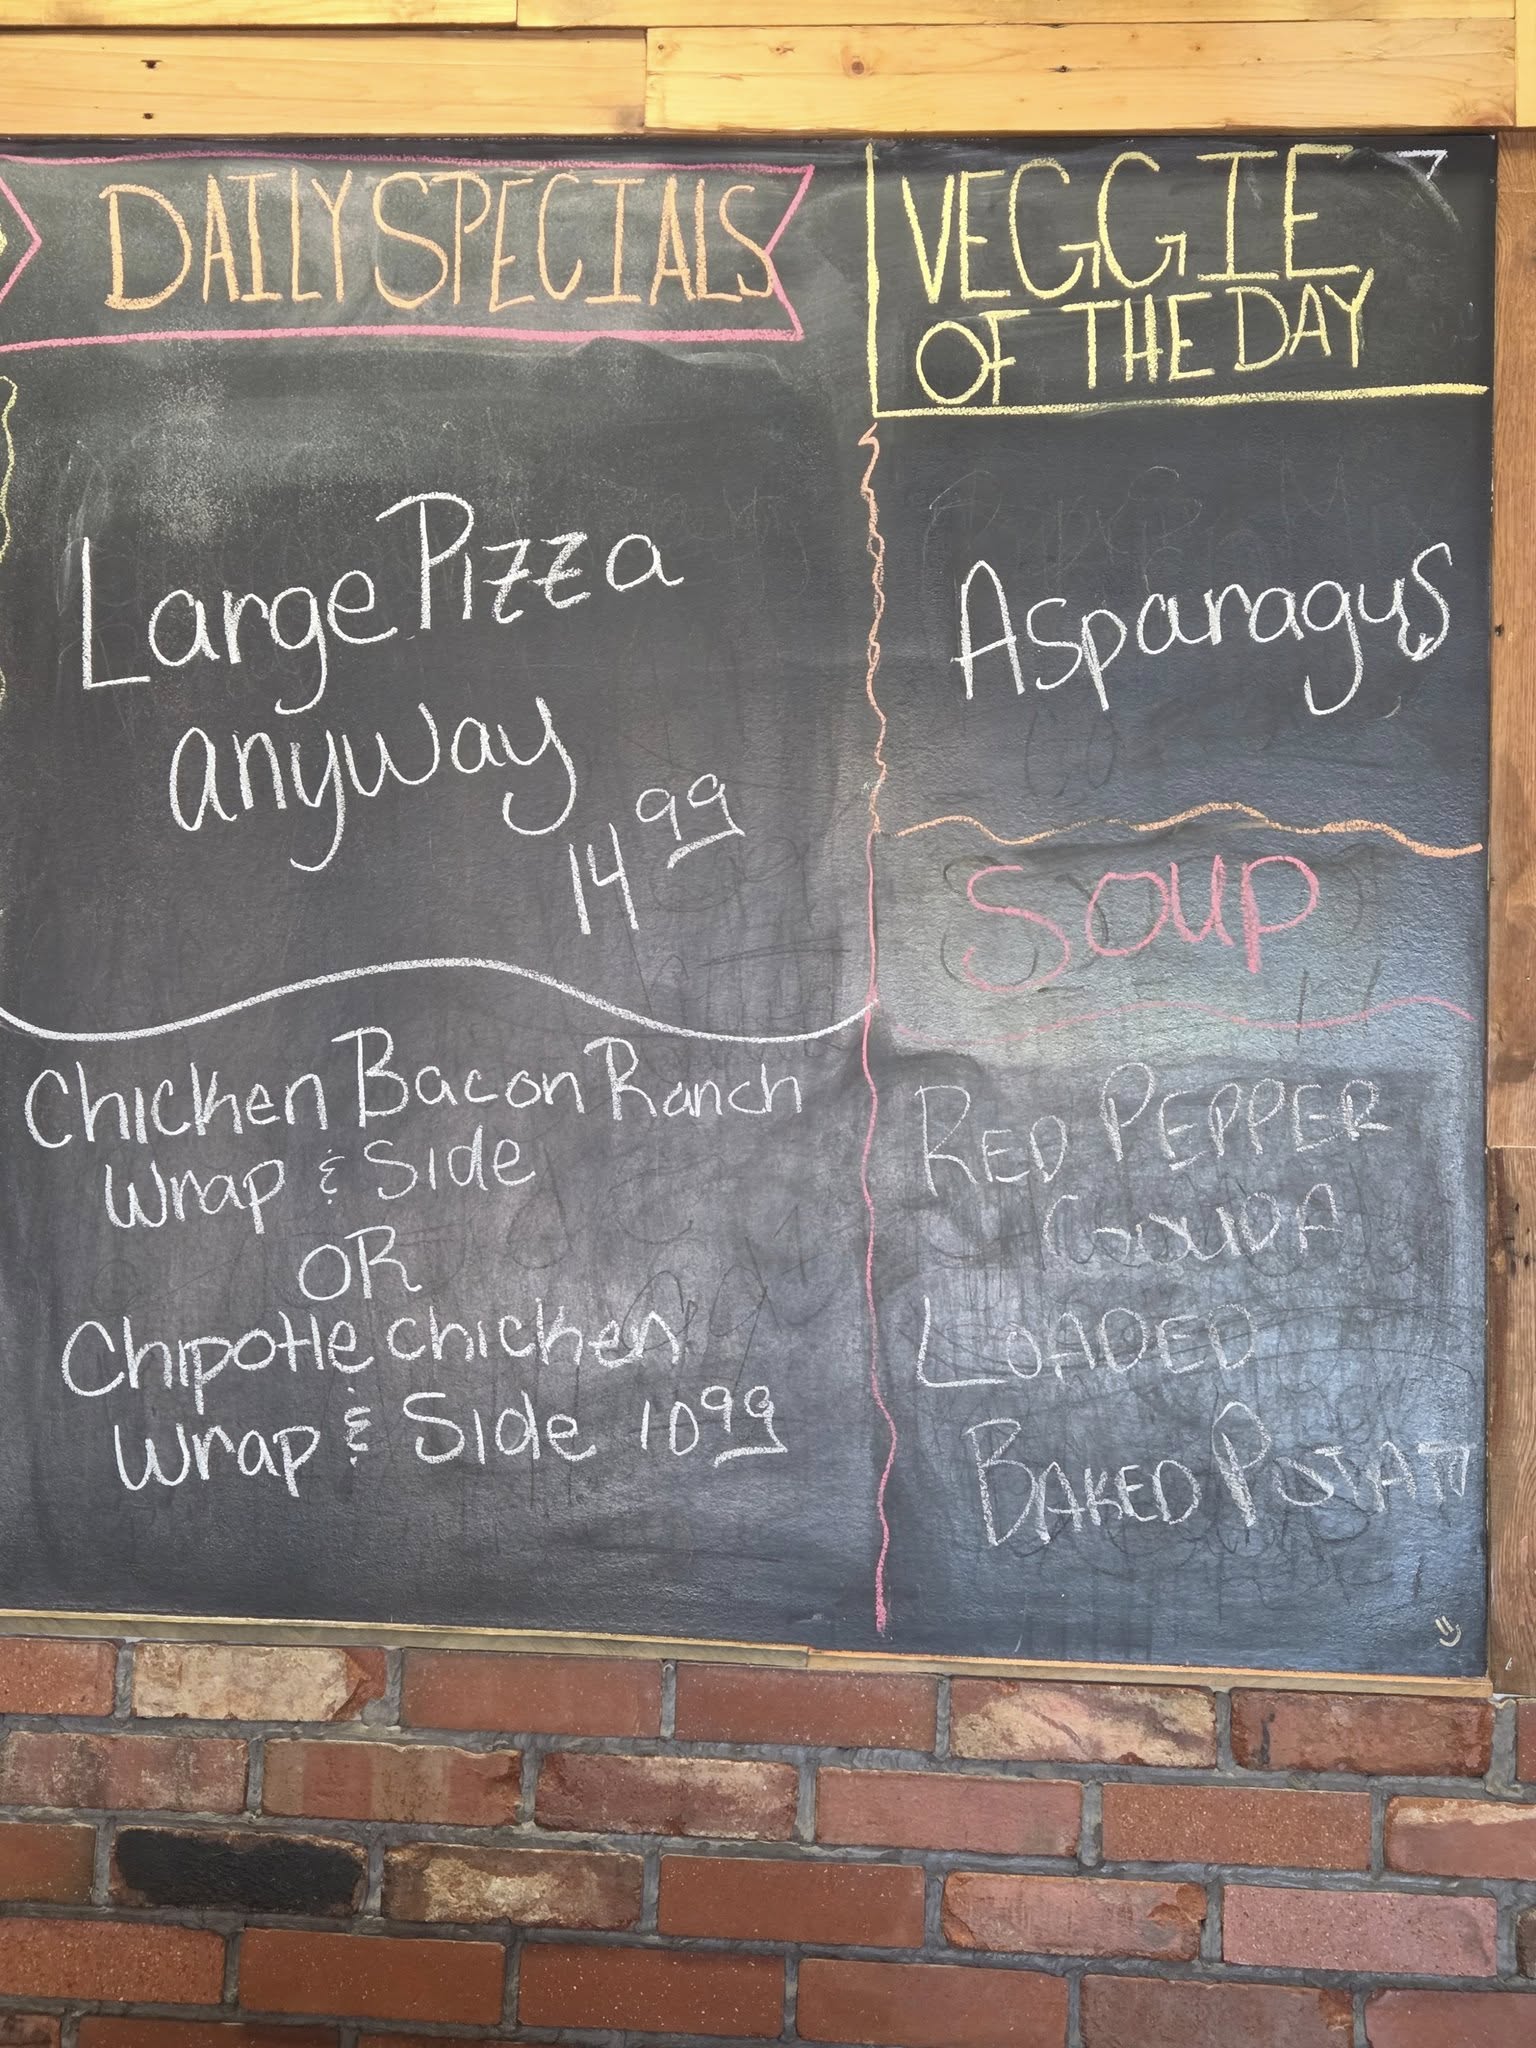 DAILY SPECIALS
Large Pizza
anyway
14 99
Chicken Bacon Ranch
Wrap & Side
OR
Chipotle chicken
Wrap & Side 10 99
VEGGIE
OF THE DAY
Asparagus
SOUP
RED PEPPER
GOUDA
LOADED
BAKED POTATO